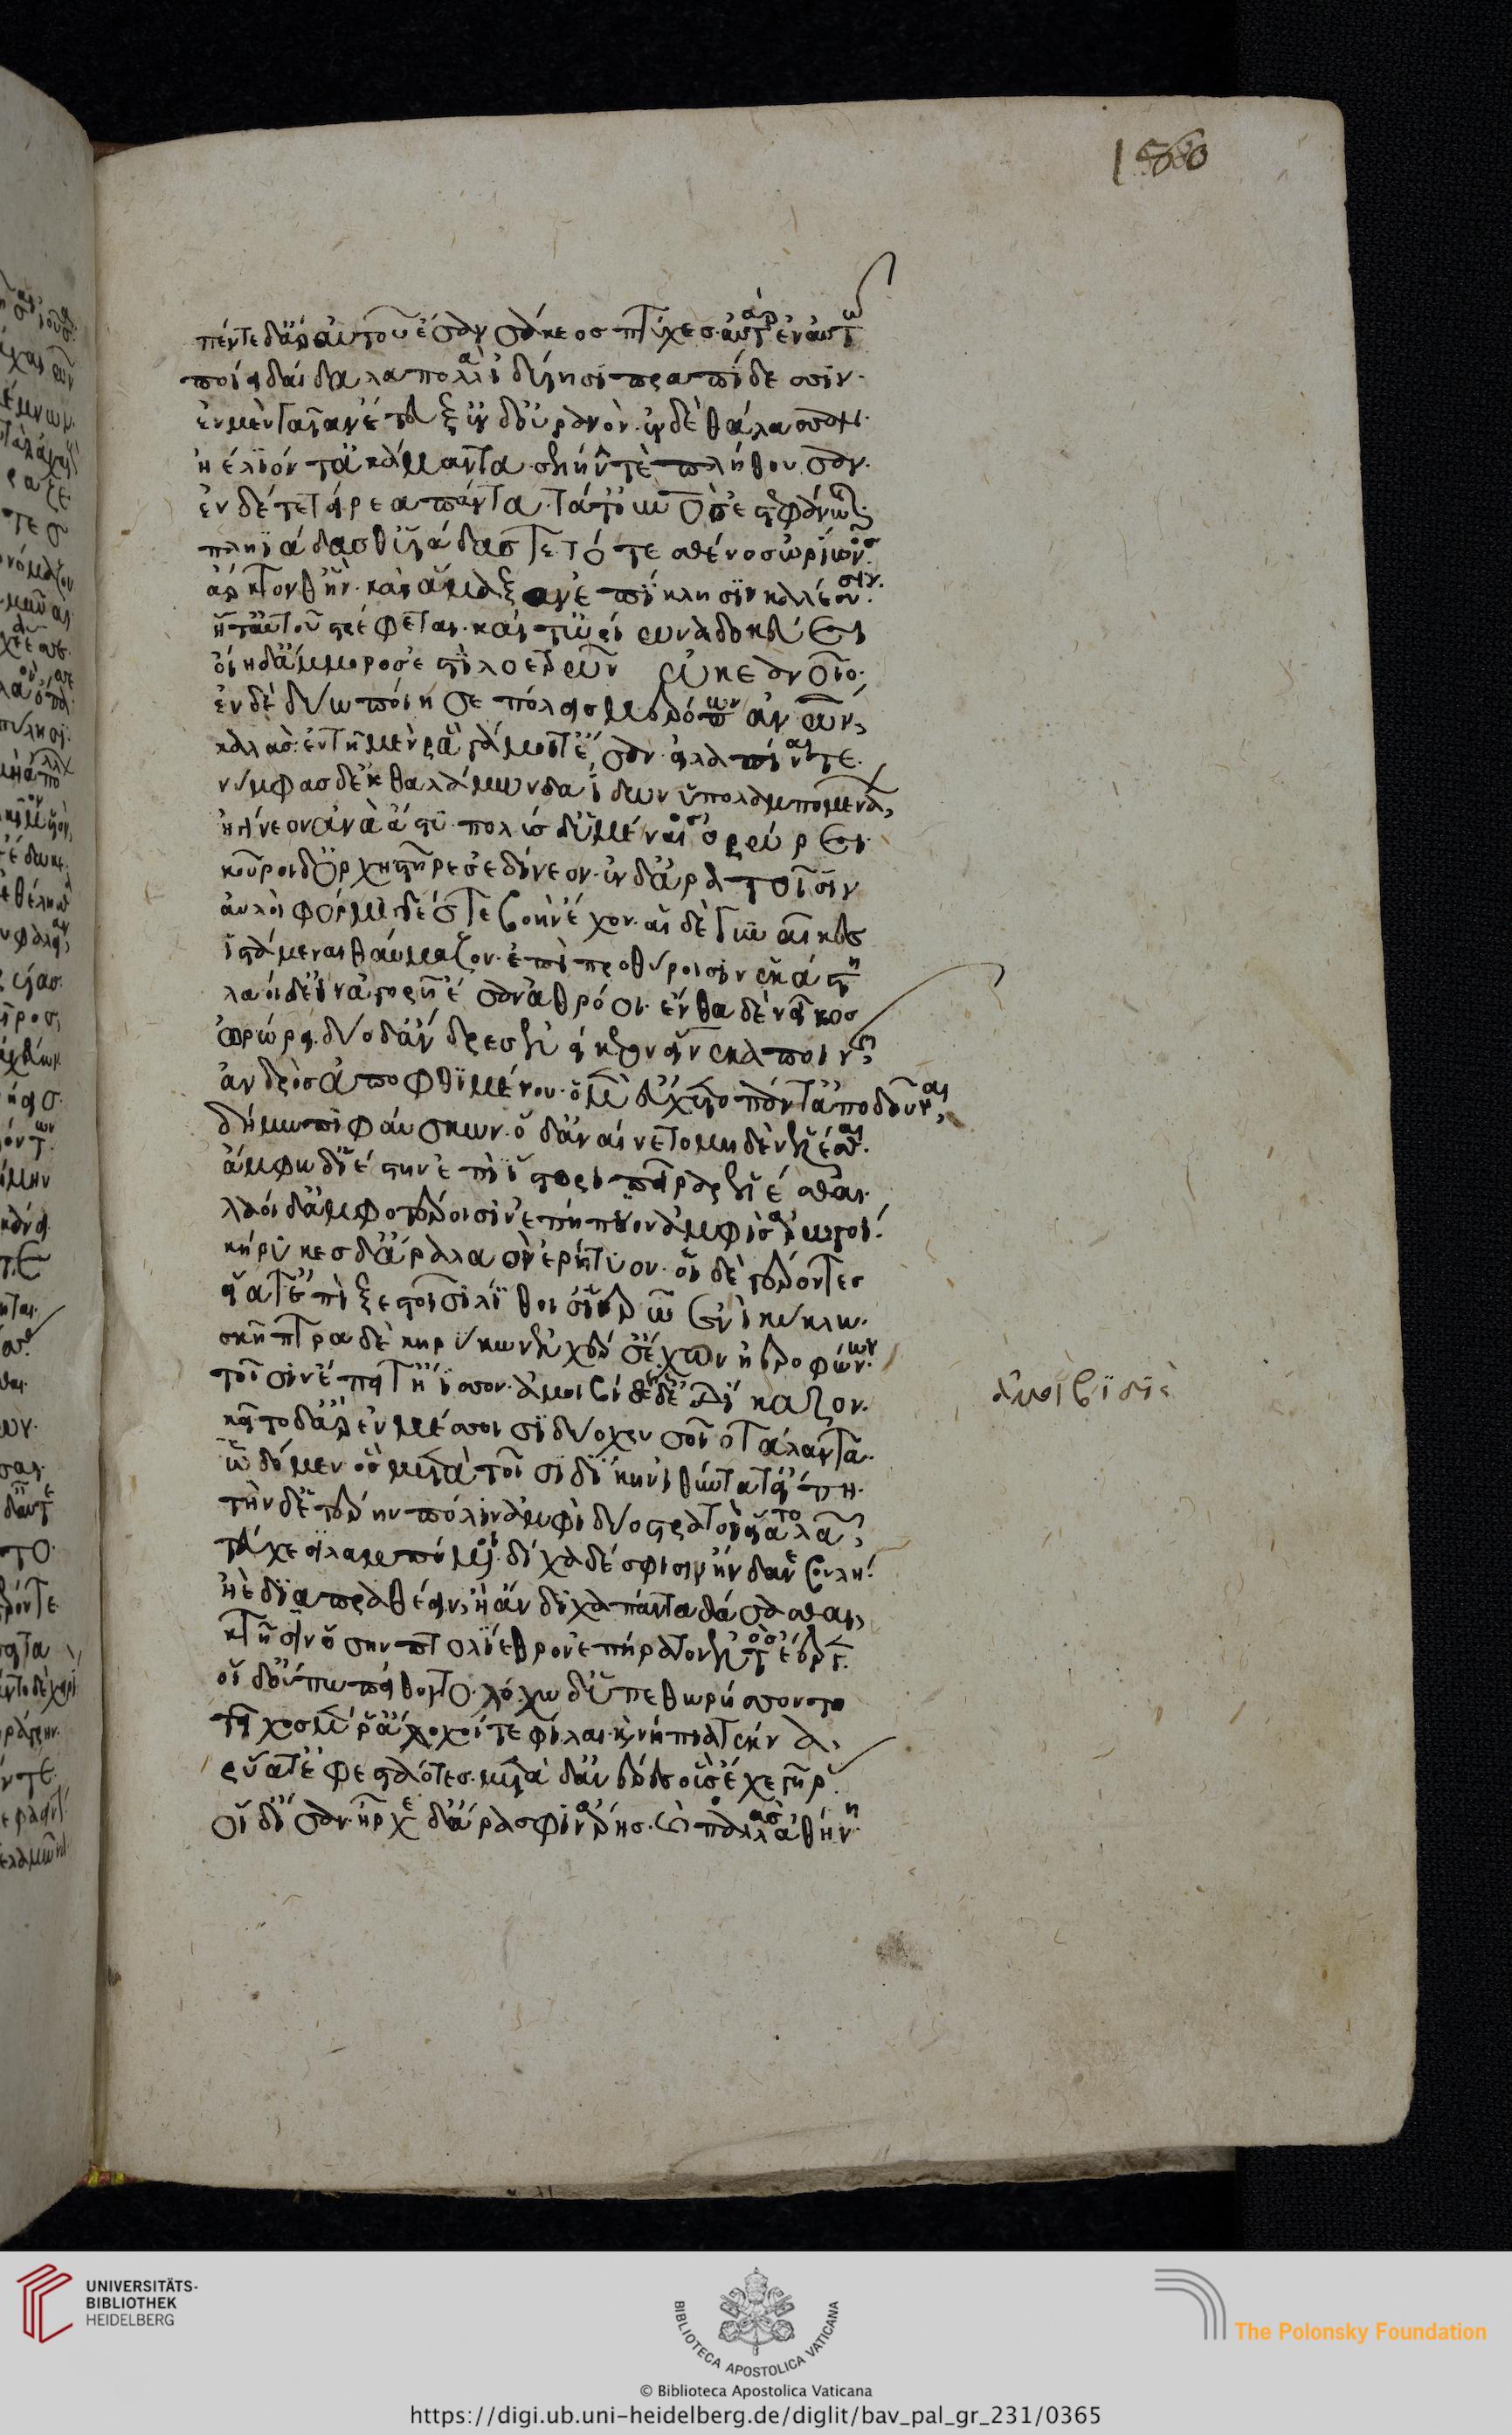 πέντε δ' ἄρ' αὐτοῦ ἔσαν σάκεος πτύχες· αὐτὰρ ἐν αὐτῶ
ποίει δαίδαλα πολλὰ ἰδυίησι πραπίδεσσιν·
ἐν μὲν γαῖαν ἔτευξ' ἐν δ' οὐρανὸν· ἐν δὲ θάλασσαν·
ἠέλιόν τ' ἀκάμαντα· σελήνην τὲ πλήθουσαν·
ἐν δέ τε τείρεα πάντα· τά τ' οὐρανὸς ἐστεφάνωται·
πληϊάδας θ' ὑάδας τε τό τε σθένος ὠρίωνος·
ἄρκτον θ' ἣν καὶ ἄμαξαν ἐπίκλησιν καλέουσιν·
ἥ τ' αὐτοῦ στρέφεται· καί τ' ὠρίωνα δοκεύει
οἴη δ' ἄμμορος ἐστὶ λοετρῶν ὠκεανοῖο·
ἐν δὲ δύω ποίησε πόλεις μερόπων ἀνθρώπων,
καλάς· ἐν τῆ μὲν ῥα γάμοι τ' ἔσαν εἰλαπίναι τε·
νύμφας δ' ἐκ θαλάμων δαΐδων ὕπο λαμπομενάων,
ἠγίνεον ἀνὰ ἄστυ· πολὺς δ' ὑμέναιος ὀρώρει·
κοῦροι δ' ὀρχηστῆρες ἐδίνεον· ἐν δ' ἄρα τοῖσιν
αὐλοὶ φόρμιγγές τε βοὴν ἔχον· αἱ δὲ γυναῖκες
ἱστάμεναι θαύμαζον· ἐπὶ προθύροισιν ἑκάστη
λαοὶ δ' εἰν ἀγορῆ ἔσαν ἀθρόοι· ἔνθα δὲ νεῖκος
ὠρώρει· δύο δ' ἄνδρες ἐνείκεον εἵνεκα ποινῆς
ἀνδρὸς ἀποφθιμένου· ὁ μὲν εὔχετο πάντ' ἀποδοῦναι,
δήμω πιφαύσκων· ὁ δ' ἀναίνετο μηδὲν ἑλέσθαι·
ἄμφω δ' ἱέσθην ἐπὶ ἴστορι πεῖραρ ἑλέσθαι·
λαοὶ δ' ἀμφοτέροισιν ἐπήπυον ἀμφὶς ἀρωγοί·
κήρυκες δ' ἄρα λαὸν ἐρήτυον· οἱ δὲ γέροντες
εἵατ' ἐπὶ ξεστοῖσι λίθοις ἱερῶ ἐνὶ κύκλω·
σκῆπτρα δὲ κηρύκων ἐν χερσ' ἔχον ἠεροφώνων·
τοῖσιν ἔπειτ' ἤϊσσον· ἀμοιβηδὶς δὲ δίκαζον·
κεῖτο δ' ἄρ' ἐν μέσοισι δύο χρυσοῖο τάλαντα·
τῶ δόμεν ὃς μετὰ τοῖσι δίκην ἰθύντατα εἴπη·
τὴν δ' ἑτέρην πόλιν ἀμφὶ δύο στρατοὶ εἵατο λαῶν,
τεύχεσι λαμπόμενοι· δίχα δέ σφισιν ἥνδανε βουλή·
ἠὲ διαπραθέειν, ἢ ἄνδιχα πάντα δάσασθαι,
κτῆσιν ὅσην πτολίεθρον ἐπήρατον ἐντὸς ἔεργε·
οἱ δ' οὔπω πείθοντο· λόχω δ' ὑπεθωρήσσοντο
τεῖχος μέν ῥ' ἄλοχοί τε φίλαι καὶ νήπια τέκνα,
ῥύατ' ἐφεσταότες· μετὰ δ' ἀνέρες οὓς ἔχε γῆρας·
οἱ δ' ἴσαν· ἦρχε δ' ἄρα σφιν ἄρης· καὶ παλλὰς ἀθήνη
ἀμοιβϊδὶς
UNIVERSITÄTS-
BIBLIOTHEK
HEIDELBERG
BIBLIOTECA APOSTOLICA VATICANA
The Polonsky Foundation
© Biblioteca Apostolica Vaticana
https://digi.ub.uni-heidelberg.de/diglit/bav_pal_gr_231/0365